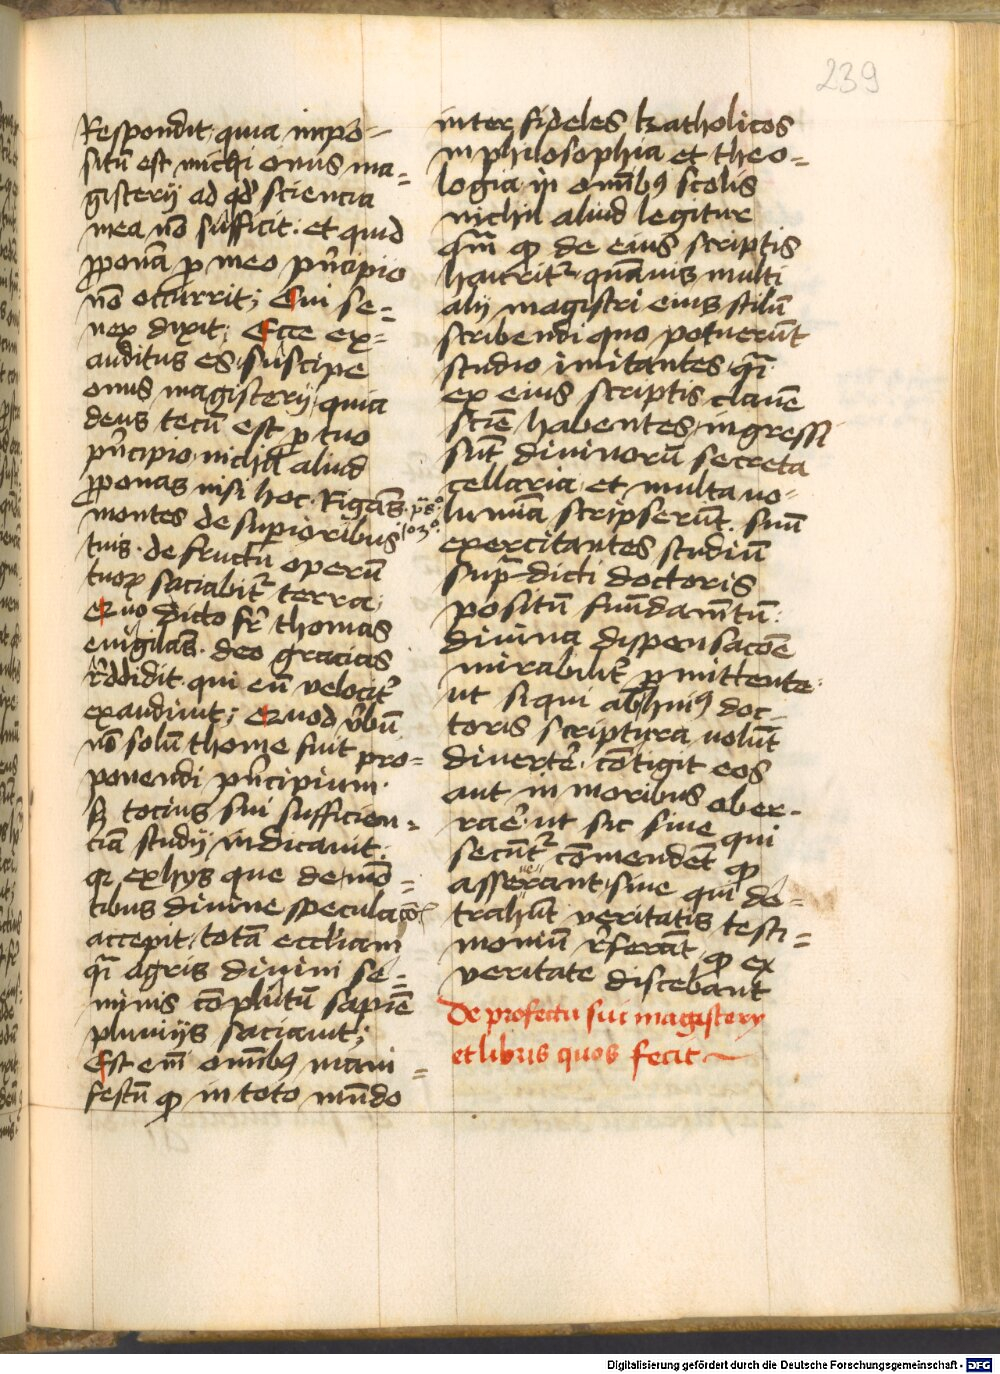 239
Respondit quia impo=
situ͞ est michi onus ma=
gisterij ad qd͛ sciencia
mea no͞ sufficit. et quid
ꝓpona͞ ꝑ meo pn͛cipio
no͞ occurrit; Cui se=
nex dixit; Ecce ex=
auditus es suscipe
onus magisterij quia
deus tecu͞ est ꝑ tuo
pn͛cipio nichil aliud
ꝓponas nisi hoc. Riga͞s
montes de superioribus
tuis. de fructu operu͞
tuoꝝ saciabit͛ terra;
Quo dicto fr͛ thomas
euigila͞s. deo gracias
r͛ddidit qui eu͞ velocit͛
exaudiuit; Quod v͛bu͞
no͞ solu͞ thome fuit pro=
ponendi pn͛cipium.
Sꝫ tocius sui sufficien=
cia͞ studij indicauit.
qꝛ ex hijs que de mo͞=
tibus diuine speculaco͞is
accepit, tota͞ eccl͛iam
qͣi agris diuini se=
minis co͞plutu͞ sapie͞
pluuijs saciauit;
Est em͞ om͞ibꝰ mani=
festu͞ ꝙ in toto mu͞do
inter fideles katholicos
in philosophia et theo=
logia in om͞ibꝰ scolis
nichil aliud legitur
qͣm ꝙ de eius scriptis
haurit͛ qua͞uis multi
alij magistri eius stilu͞
scribendi quo potueru͞t
studio imitantes qͣi
ex eius scriptis claue͞
scie͞ habentes ingressi
su͞t diuinoru͞ secreta
cellaria et multa uo=
lumi͞a scripseru͞t. suu͞
exercitantes studiu͞
supͣdicti doctoris
positu͞ fundam͞tu͞.
diuina dispensacoe͞
mirabilit͛ ꝑmittente.
ut si qui ab huiꝰ doc=
toris scriptura uolu͞t
diuerte͛. co͞tigit eos
aut in moribus ober=
rar͛e ut sic siue qui
secu͞t͛ co͞mende͞t ꝙ
asserant siue qui de=
trahu͞t veritatis testi=
moniu͞ r͛fera͞t ꝙ ex
veritate discebant
De profectu sui magisterij
et libris quos fecit
Digitalisierung gefördert durch die Deutsche Forschungsgemeinschaft - DFG